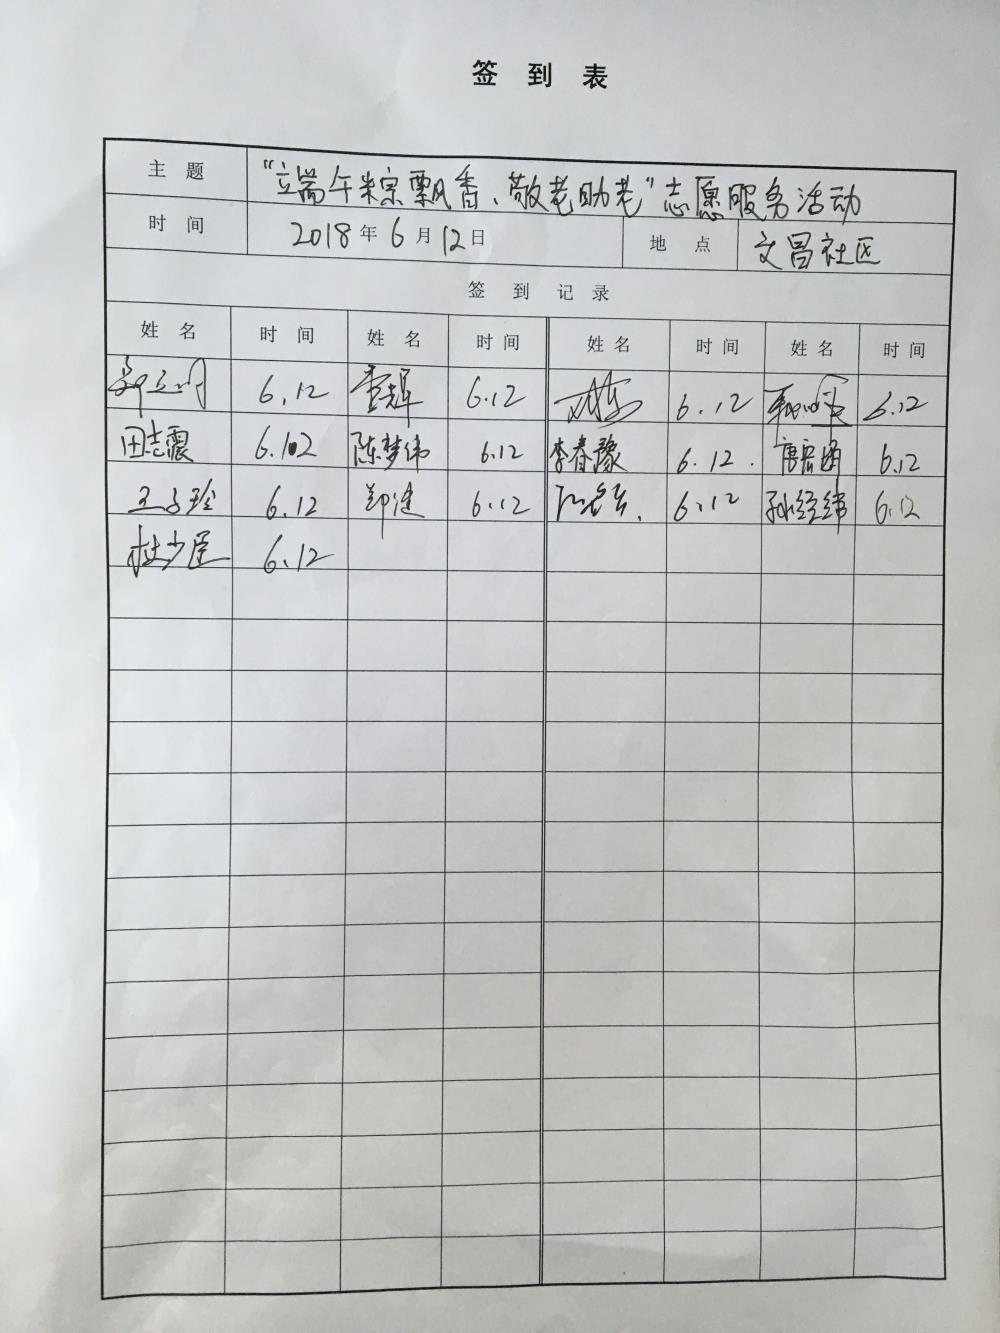 签到表
主题 “立端午粽飘香、敬老助老”志愿服务活动
时间 2018年6月12日 地点 文昌社区
签到记录
姓名 时间 姓名 时间 姓名 时间 姓名 时间
6.12 6.12 6.12 6.12
田志震 6.12 陈梦伟 6.12 李春豫 6.12. 唐宏通 6.12
王子玲 6.12 郑健 6.12 6.12 孙经纬 6.12
杜少臣 6.12